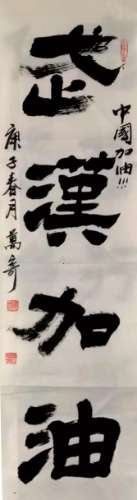 武漢加油
中國加油!!!
庚子春月萬奇